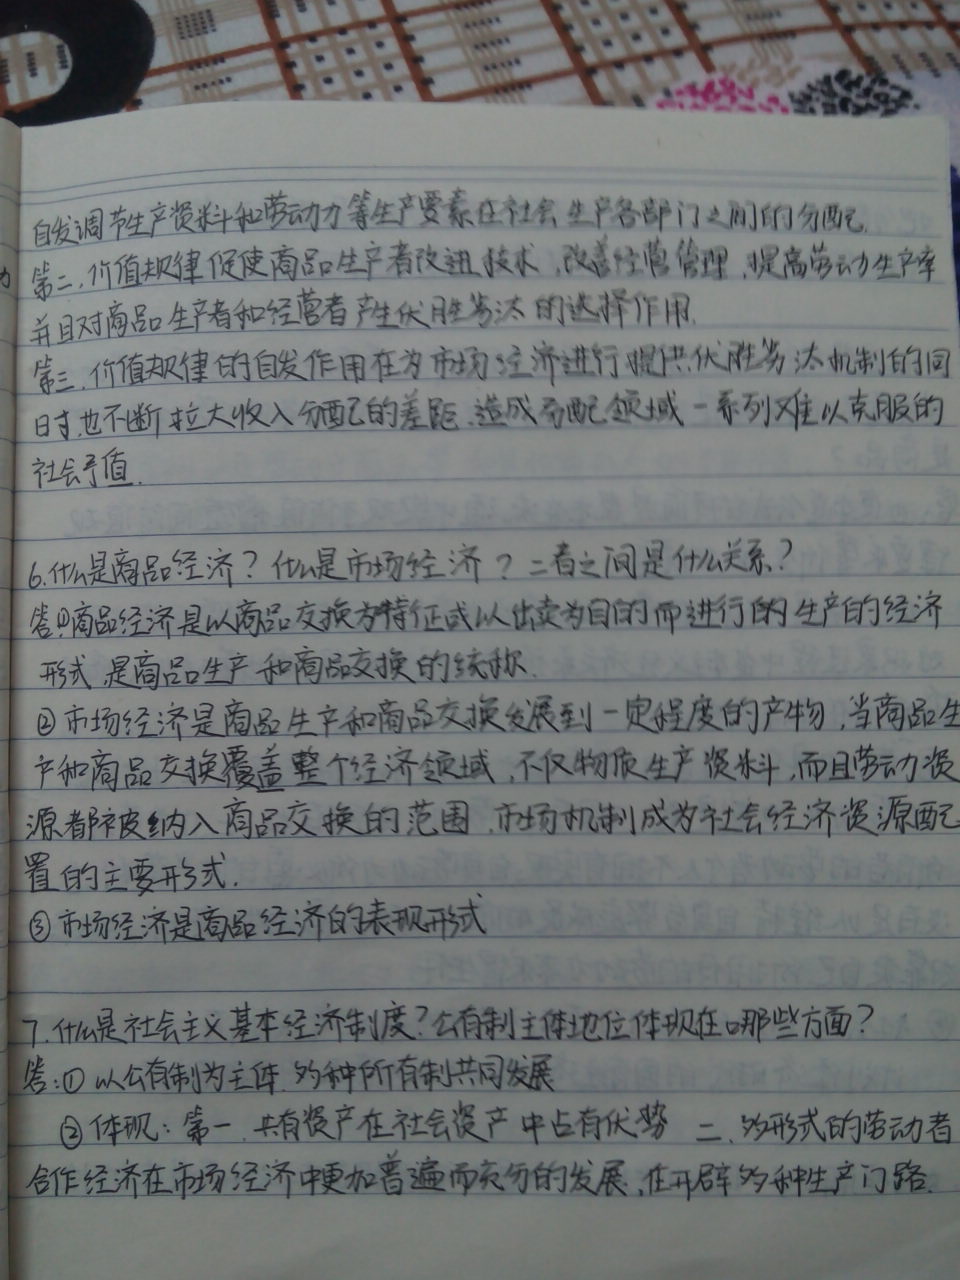 自发调节生产资料和劳动力等生产要素在社会生产各部门之间的分配.
第二,价值规律促使商品生产者改进技术,改善经营管理,提高劳动生产率
并且对商品生产者和经营者产生优胜劣汰的选择作用.
第三.价值规律的自发作用在为市场经济进行提供优胜劣汰机制的同
时,也不断拉大收入分配的差距,造成分配领域一系列难以克服的
社会予值.
6.什么是商品经济?什么是市场经济?二者之间是什么关系?
答:①商品经济是以商品交换为特征或以出卖为目的而进行的生产的经济
形式,是商品生产和商品交换的统称.
②市场经济是商品生产和商品交换发展到一定程度的产物,当商品生
产和商品交换覆盖整个经济领域,不仅物质生产资料,而且劳动力资
源都被纳入商品交换的范围,市场机制成为社会经济资源配
置的主要形式.
③市场经济是商品经济的表现形式
7.什么是社会主义基本经济制度?公有制主体地位体现在哪些方面?
答:①以公有制为主体,多种所有制共同发展
②体现:第一,共有资产在社会资产中占有优势 二、多形式的劳动者
合作经济在市场经济中更加普遍而充分的发展,在开辟多种生产门路.